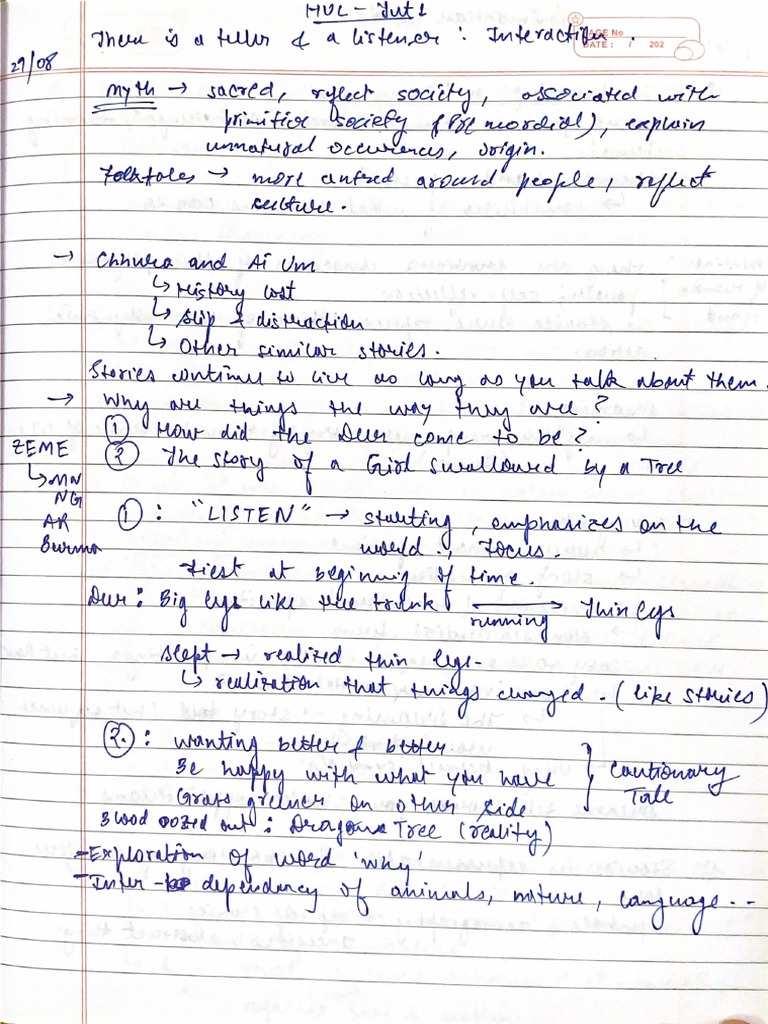 HUL - Tut 1
PAGE No
DATE: / 202
There is a teller & a listener: Interaction.
29/08
Myth → sacred, reflect society, associated with
primitive society (Primordial), explain
unnatural occurences, origin.
Folktales → more centred around people, reflect
culture.
→ Chhura and Ai Um
↳ History lost
↳ Slip & distraction
↳ Other similar stories.
Stories continue to live as long as you talk about them.
→ Why are things the way they are?
① How did the Deer come to be?
ZEME
② The story of a Girl swallowed by a Tree
↳ MN
NG
AR
Burma
①: "LISTEN" → starting, emphasizes on the
world., Focus.
First at beginning of time.
Deer: Big legs like tree trunk → running Thin legs
slept → realized thin legs.
↳ realization that things changed. (like stories)
②.: wanting better & better
Be happy with what you have
Grass greener on other side
} Cautionary
Tale
Blood oozed out: Dragon Tree (reality)
- Exploration of word 'why'
- Inter - dependency of animals, nature, language...